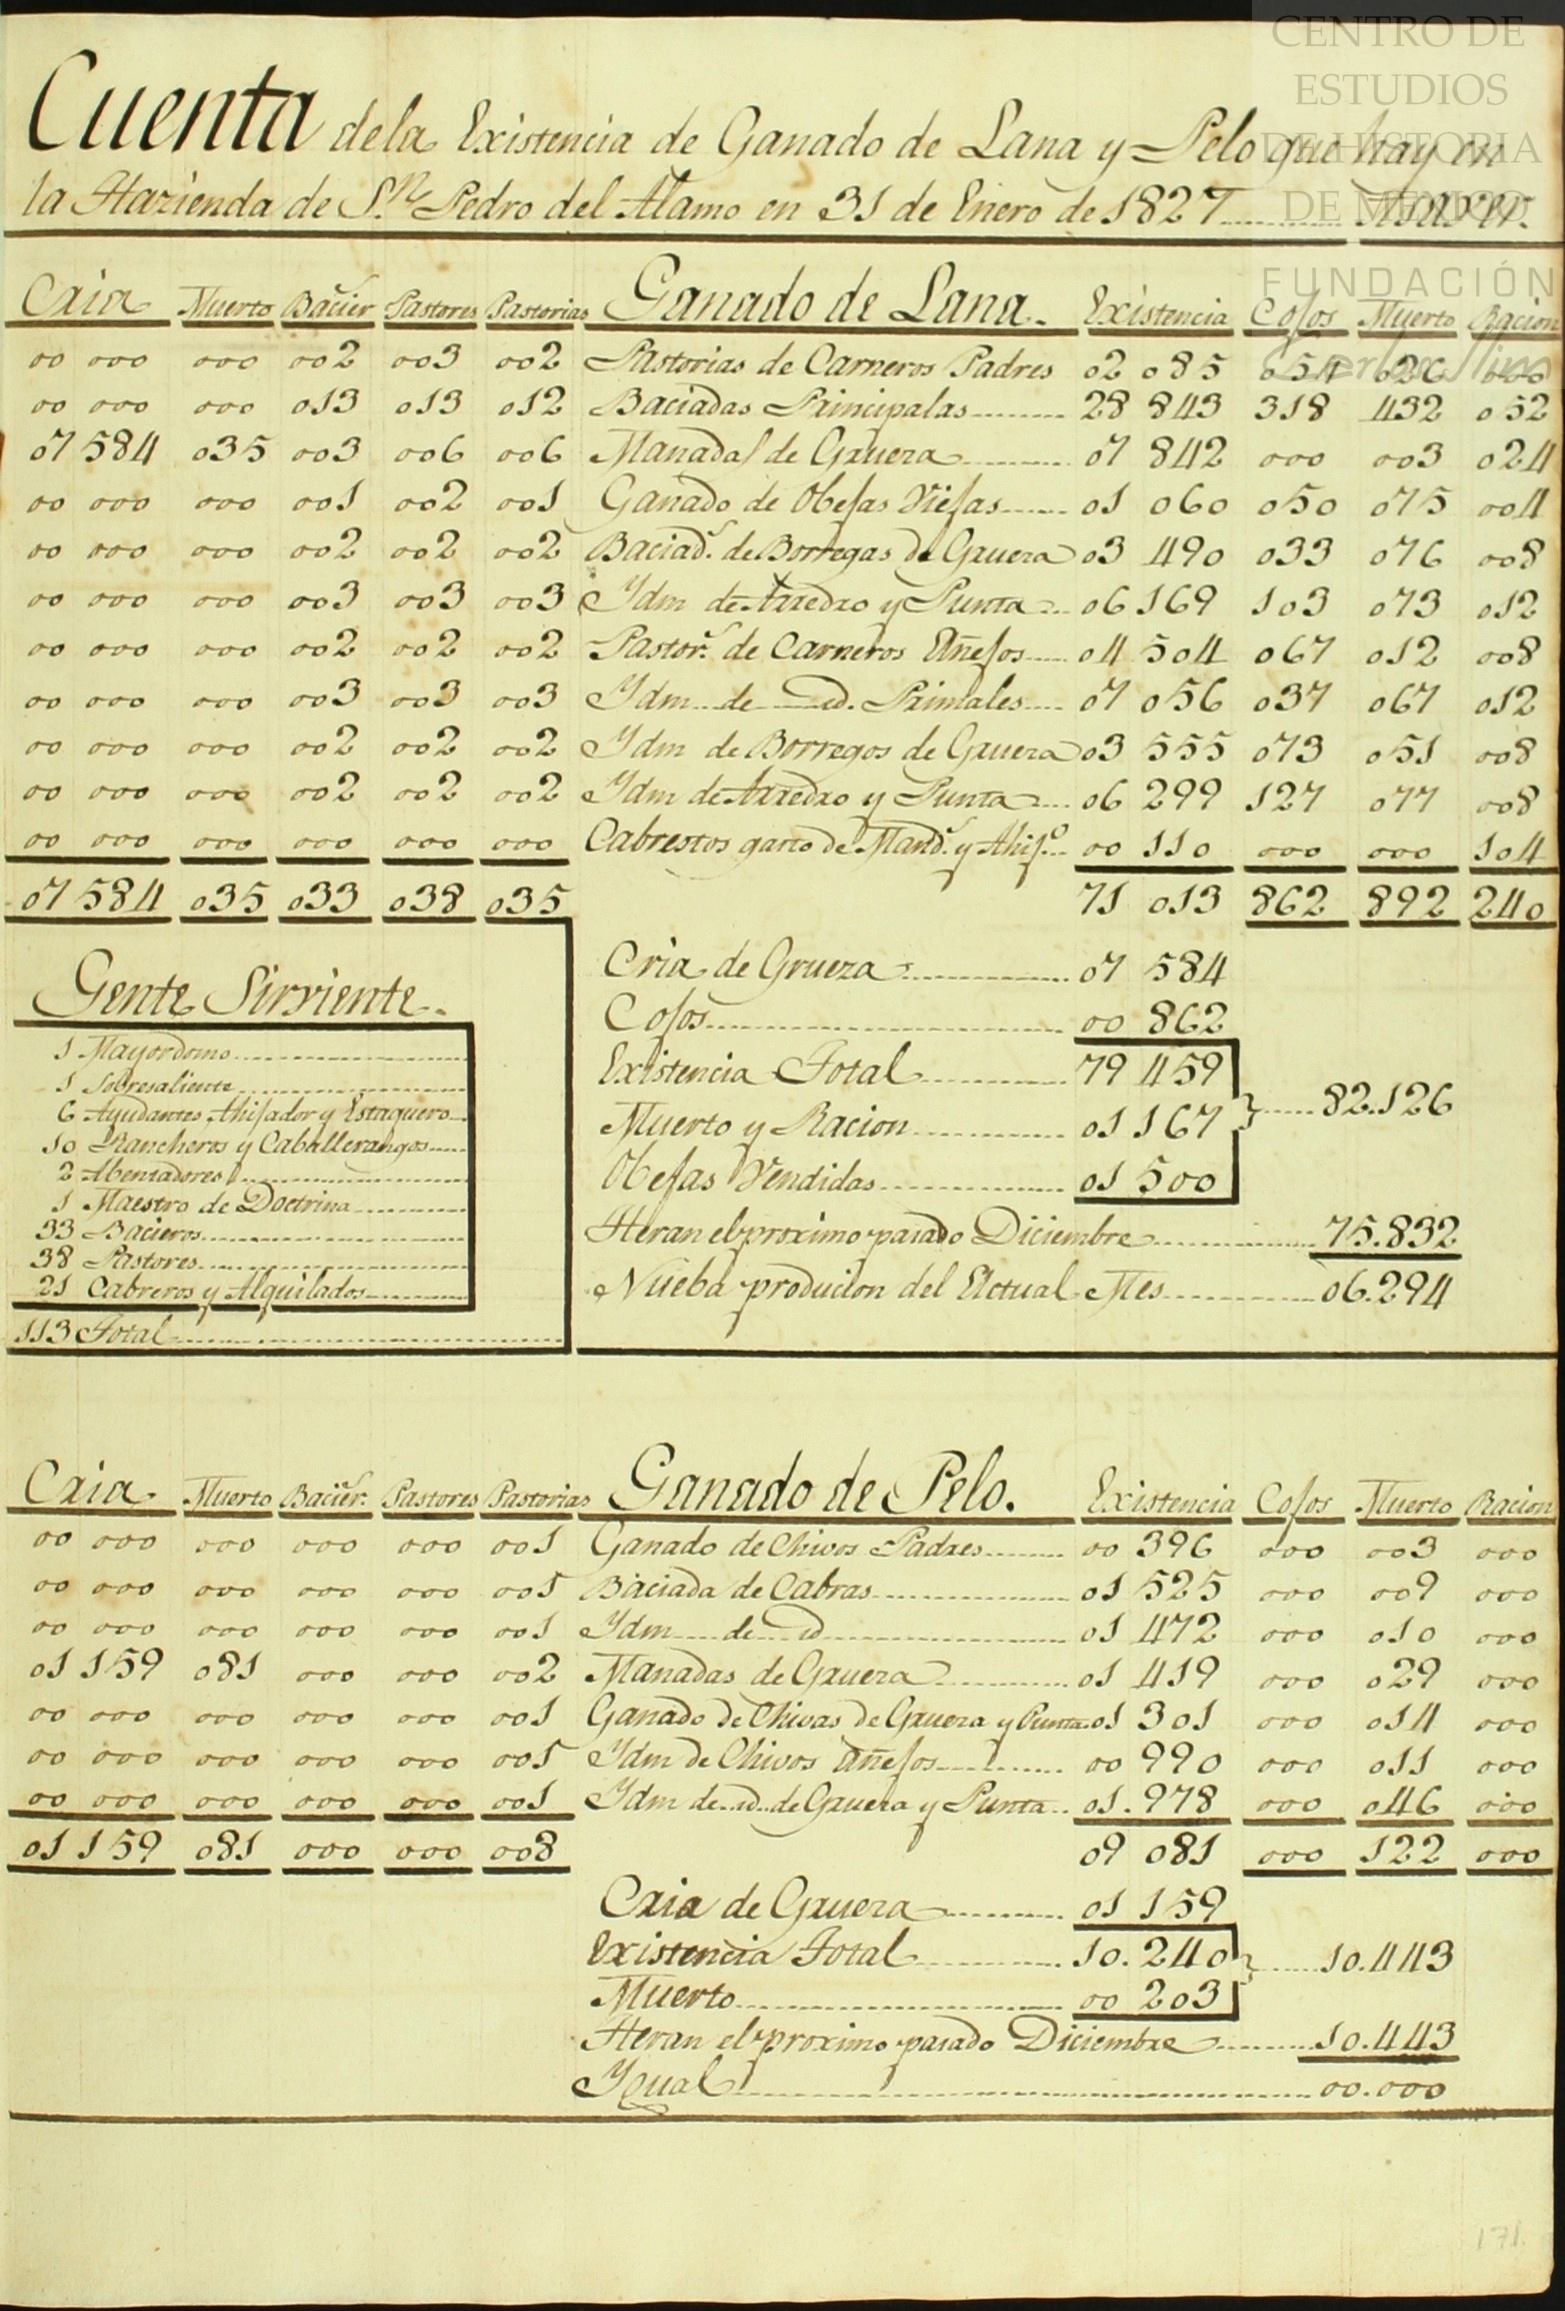 CENTRO DE
ESTUDIOS
DE HISTORIA
DE MEXICO
FUNDACIÓN
Cuenta dela Existencia de Ganado de Lana y Pelo que hay en
la Hazienda de S.n Pedro del Alamo en 31 de Enero de 1827
Cria Muerto Bacier Pastores Pastorias Ganado de Lana. Existencia Cojos Muerto Racion
00 000 000 002 003 002 Pastorias de Carneros Padres 02 085 054 026 000
00 000 000 013 013 012 Baciadas Principalas 28 843 318 432 052
07 584 035 003 006 006 Manadas de Gruera 07 842 000 003 024
00 000 000 001 002 001 Ganado de Obejas Viejas 01 060 050 075 004
00 000 000 002 002 002 Baciad.s de Borregas de Gruera 03 490 033 076 008
00 000 000 003 003 003 Ydm de Arredro y Punta 06 169 103 073 012
00 000 000 002 002 002 Pastor.s de Carneros Añejos 04 504 067 012 008
00 000 000 003 003 003 Ydm de id. Primales 07 056 037 067 012
00 000 000 002 002 002 Ydm de Borregos de Gruera 03 555 073 051 008
00 000 000 002 002 002 Ydm de Arredro y Punta 06 299 127 077 008
00 000 000 000 000 000 Cabrestos garto de Mand.s y Ahij.o 00 110 000 000 104
07 584 035 033 038 035 71 013 862 892 240
Cria de Gruera 07 584
Cojos 00 862
Existencia Total 79 459
Muerto y Racion 01 167 82.126
Obejas Vendidas 01 500
Heran el proximo pasado Diciembre 75.832
Nueba producion del Actual Mes 06.294
Gente Sirviente.
1 Mayordomo
1 Sobresaliente
6 Ayudantes Ahijador y Estaquero
10 Rancheros y Caballerangos
2 Abentadores
1 Maestro de Doctrina
33 Bacieros
38 Pastores
21 Cabreros y Alquilados
113 Total
Cria. Muerto Bacier. Pastores Pastorias Ganado de Pelo. Existencia Cojos Muerto Racion
00 000 000 000 000 001 Ganado de Chivos Padres 00 396 000 003 000
00 000 000 000 000 001 Baciada de Cabras 01 525 000 009 000
00 000 000 000 000 001 Ydm de id 01 472 000 010 000
01 159 081 000 000 002 Manadas de Gruera 01 419 000 029 000
00 000 000 000 000 001 Ganado de Chivas de Gruera y Punta 01 301 000 014 000
00 000 000 000 000 001 Ydm de Chivos Añejos 00 990 000 011 000
00 000 000 000 000 001 Ydm de id de Gruera y Punta 01.978 000 046 000
01 159 081 000 000 008 09 081 000 122 000
Cria de Gruera 01 159
Existencia Total 10.240 10.443
Muerto 00 203
Heran el proximo pasado Diciembre 10.443
Ygual 00.000
171